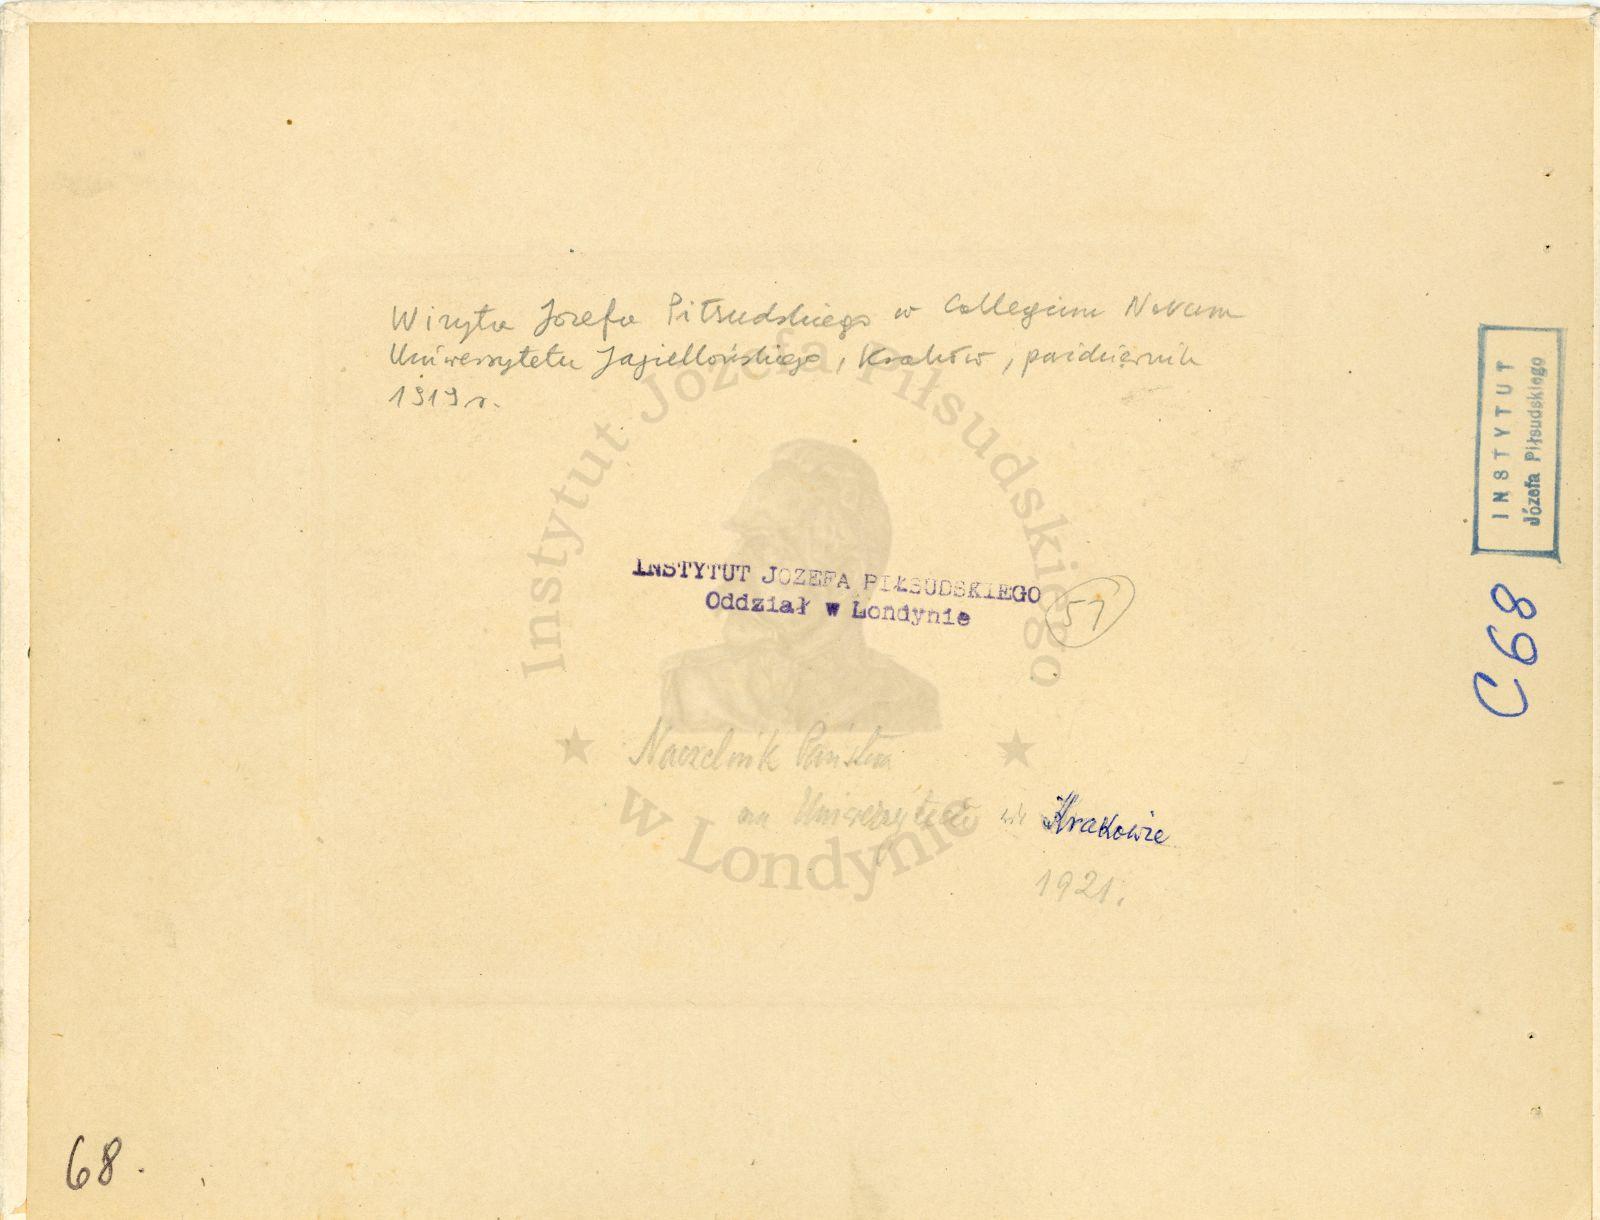 Wizyta Józefa Piłsudskiego w Collegium Novum
Uniwersytetu Jagiellońskiego, Kraków, październik
1919 r.
Instytut Józefa Piłsudskiego
w Londynie
INSTYTUT JOZEFA PIŁSUDSKIEGO
Oddział w Londynie
51
Naczelnik Państwa
na Uniwersytecie w Krakowie
1921.
INSTYTUT
Józefa Piłsudskiego
C68
68.